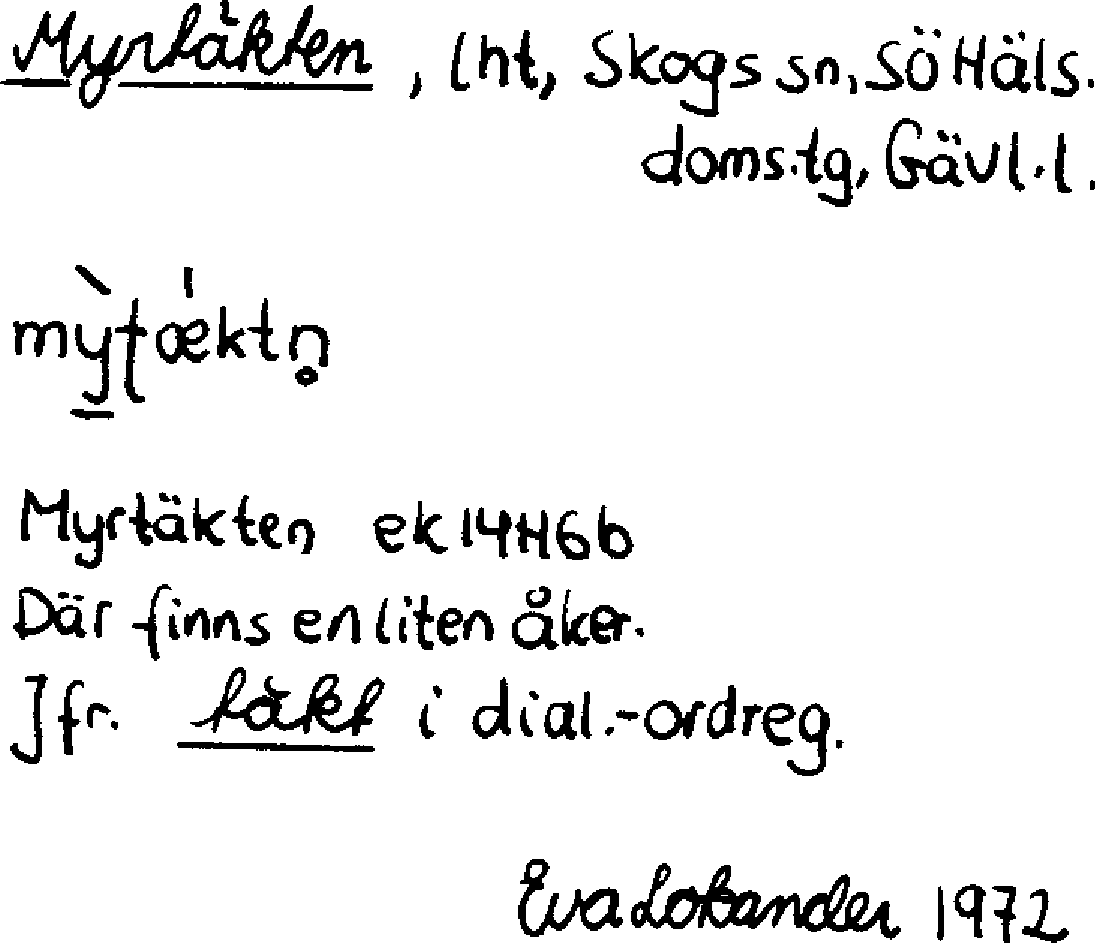 Myrtäkten, lht, Skogs sn, SöHäls.
doms.tg, Gävl.l.
mỳ̠ƭǽktn̥
Myrtäkten ek 14H6b
Där finns en liten åker.
Jfr. täkt i dial.-ordreg.
Eva Lobander 1972